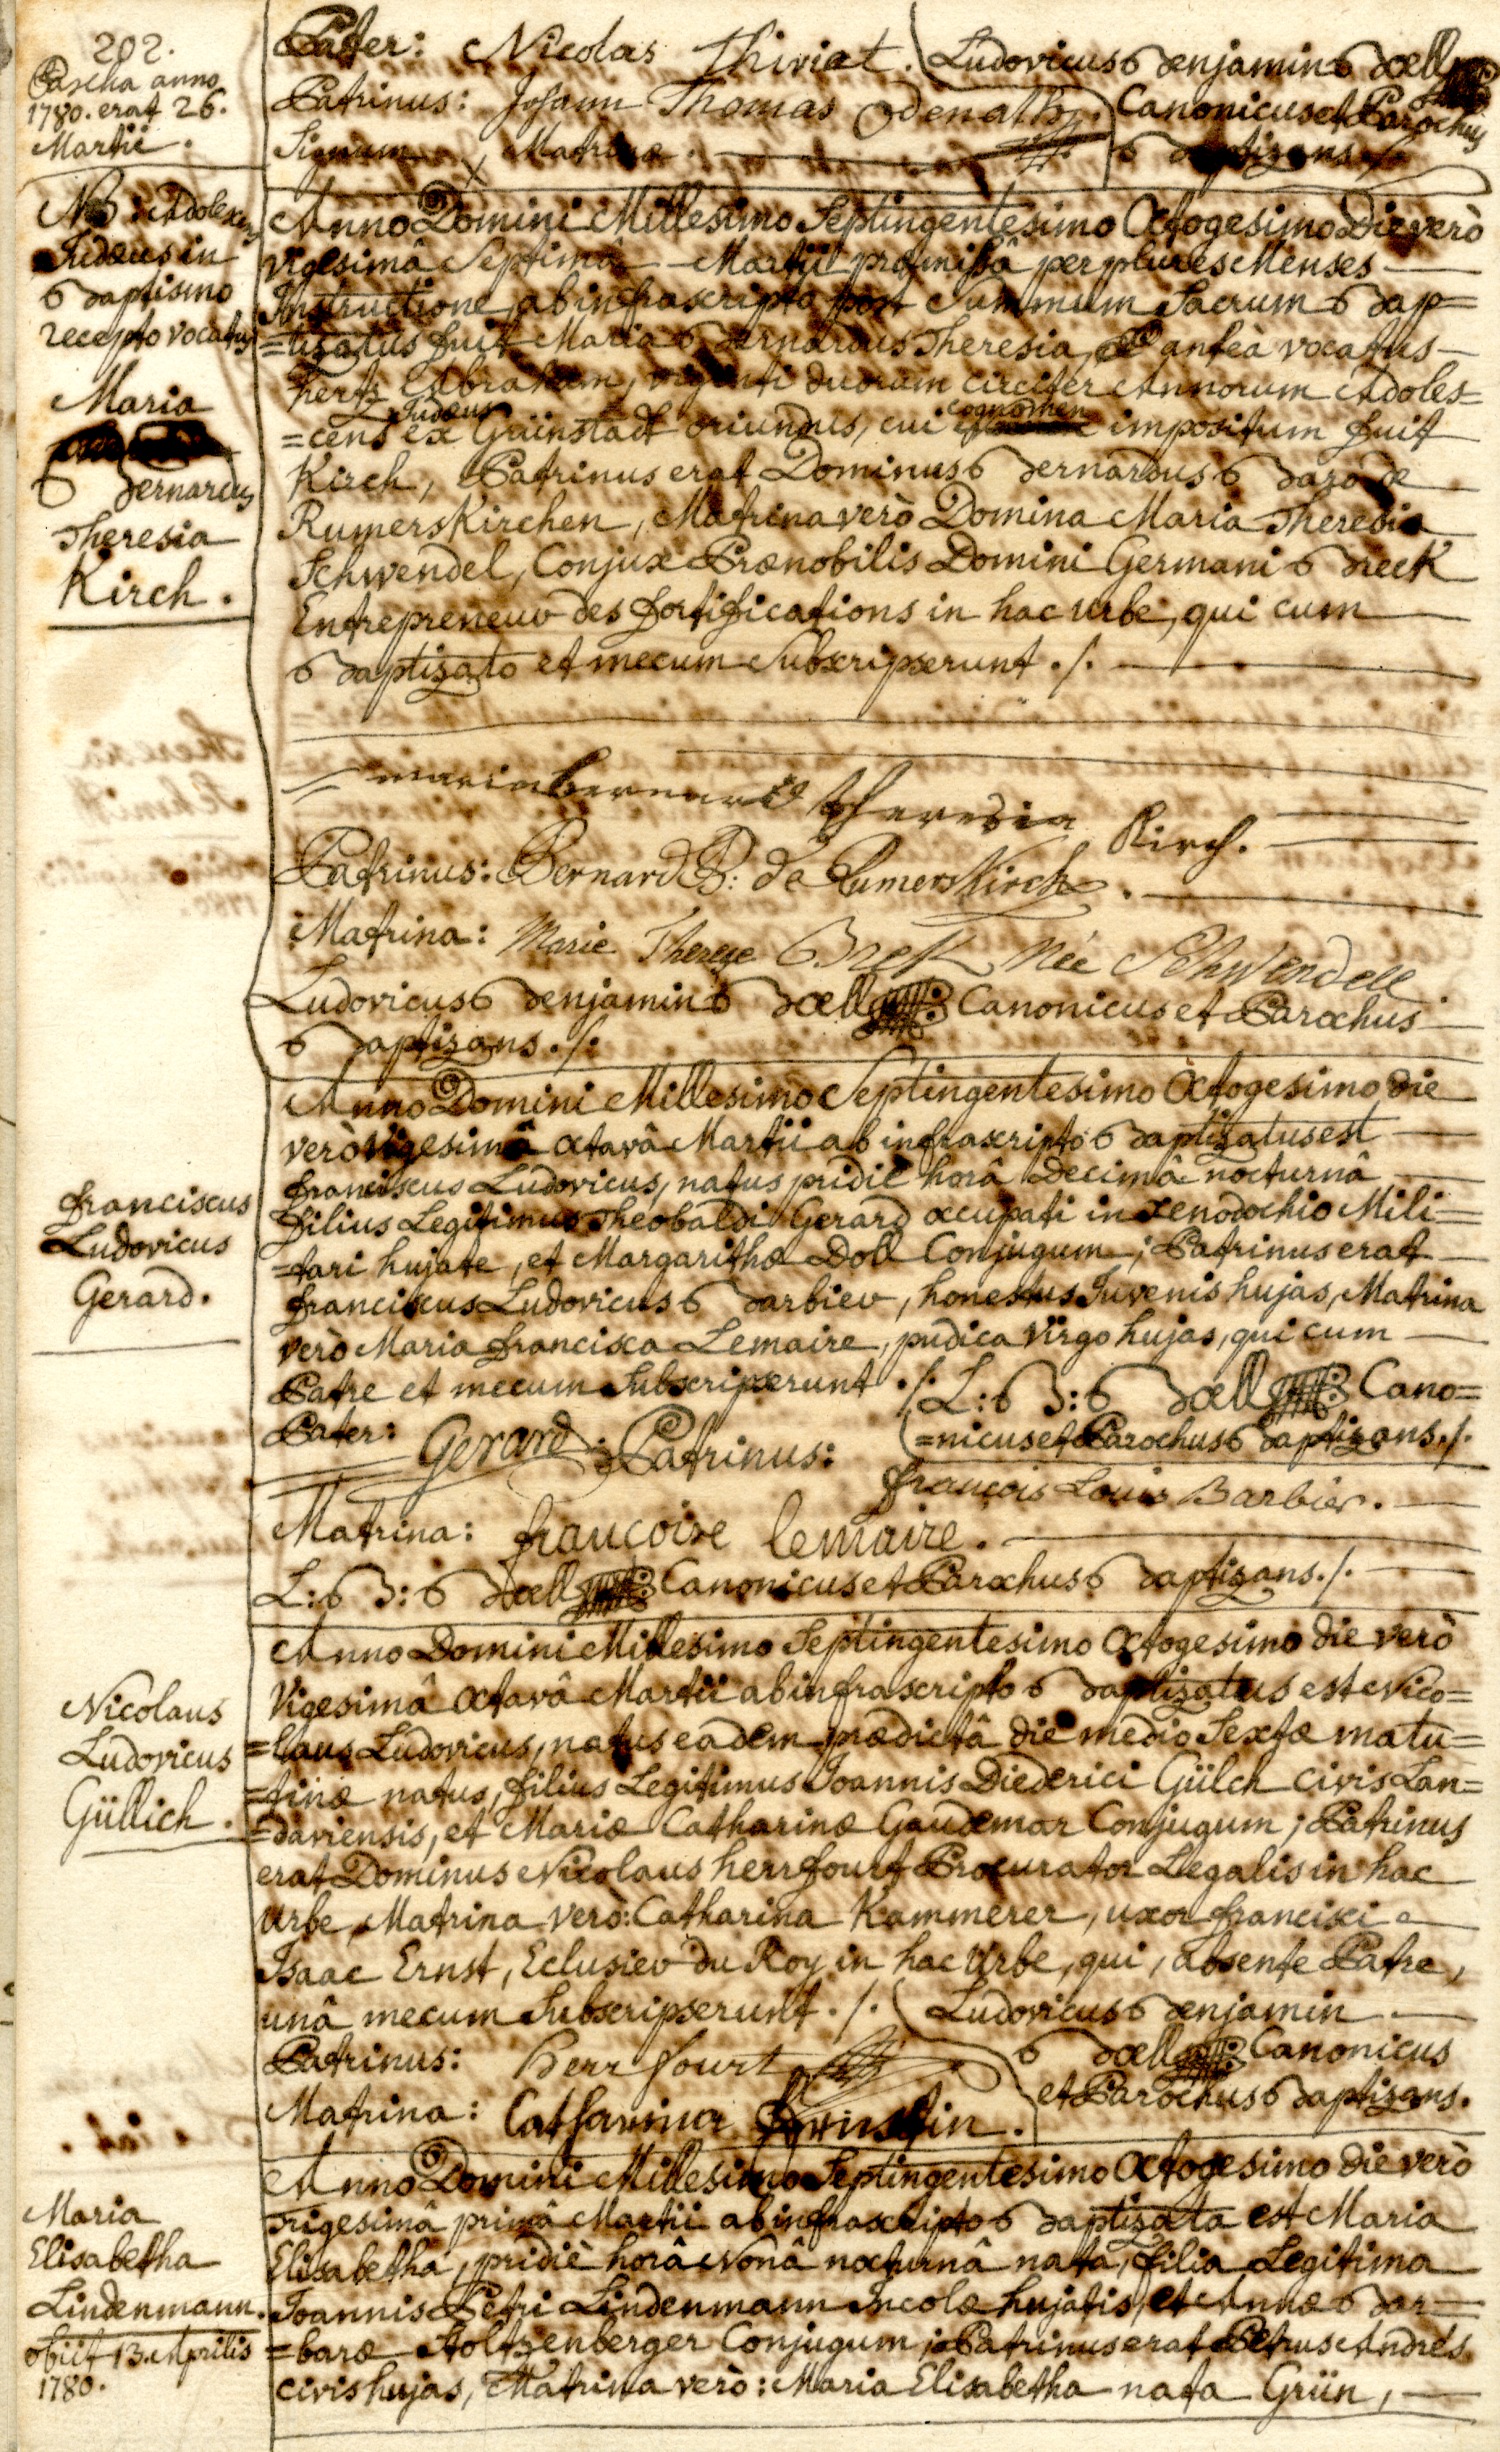 202.
Pascha anno
1780. erat 26.
Martii.
Pater: Nicolas Thiriat. Ludovicus Benjamin Bœll
Patrinus: Johann Thomas Odenath. Canonicus et Parochus
Signum x Matrinæ. Baptizans ./.
NB: Adolescens
Judæus in
Baptismo
recepto vocatus
Maria
Bernardus
Theresia
Kirch.
Anno Domini Millesimo Septingentesimo Octogesimo die verò
vigesimâ Septimâ Martii præmissâ per plures Menses
Instructione, ab infrascripto post Summum Sacrum Bap=
=tizatus fuit Maria Bernardus Theresia, antèà vocatus
hertz Abraham, viginti duorum circiter Annorum Adoles=
=cens Judæus ex Grünstadt oriundus, cui cognomen impositum fuit
Kirch, Patrinus erat Dominus Bernardus Baro de
Rumerskirchen, Matrina verò Domina Maria Theresia
Schwendel, Conjux Prænobilis Domini Germani Breck
Entrepreneur des fortifications in hac urbe, qui cum
Baptizato et mecum Subscripserunt ./.
maria bernard theresia Kirch.
Patrinus: Bernard B: de Rumerskirch.
Matrina: Marie Therese Breck Née Schwendell.
Ludovicus Benjamin Bœll Canonicus et Parochus
Baptizans ./.
franciscus
Ludovicus
Gerard.
Anno Domini Millesimo Septingentesimo Octogesimo die
verò vigesimâ octavâ Martii ab infrascripto Baptizatus est
franciscus Ludovicus, natus pridiè horâ decimâ nocturnâ
filius Legitimus Theobaldi Gerard occupati in xenodochio Mili=
=tari hujate, et Margarithæ Doll Conjugum; Patrinus erat
franciscus Ludovicus Barbier, honestus Juvenis hujas, Matrina
verò Maria francisca Lemaire, pudica virgo hujas, qui cum
Patre et mecum Subscripserunt ./. L: B: Bœll Cano=
=nicus et Parochus Baptizans ./.
Pater: Gerard. Patrinus:
françois Louis Barbier.
Matrina: francoise lemaire.
L: B: Bœll Canonicus et Parochus Baptizans ./.
Nicolaus
Ludovicus
Güllich.
Anno Domini Millesimo Septingentesimo Octogesimo die verò
Vigesimâ octavâ Martii ab infrascripto Baptizatus est Nico=
=laus Ludovicus, natus eadem prædictâ die medio Sextæ matu=
=tinæ natus, filius Legitimus Joannis Diederici Gülch civis Lan=
=daviensis, et Mariæ Catharinæ Gaudemar Conjugum; Patrinus
erat Dominus Nicolaus herrfourt Procurator Legalis in hac
Urbe, Matrina verò: Catharina Kammerer, uxor francisci
Isaac Ernst, Eclusier du Roy in hac Urbe, qui, absente Patre,
unâ mecum Subscripserunt ./. Ludovicus Benjamin
Bœll Canonicus
et Parochus Baptizans.
Patrinus: herrfourt
Matrina: Catharina Ernstin.
Maria
Elisabetha
Lindenmann.
obiit 13. Aprilis
1780.
Anno Domini Millesimo Septingentesimo Octogesimo die verò
Trigesimâ primâ Martii ab infrascripto Baptizata est Maria
Elisabetha, pridiè horâ nonâ nocturnâ nata, filia Legitima
Joannis Petri Lindenmann Incolæ hujatis, et Annæ Bar=
=baræ Stoltzenberger Conjugum; Patrinus erat Petrus Andrés
civis hujas, Matrina verò: Maria Elisabetha nata Grün,